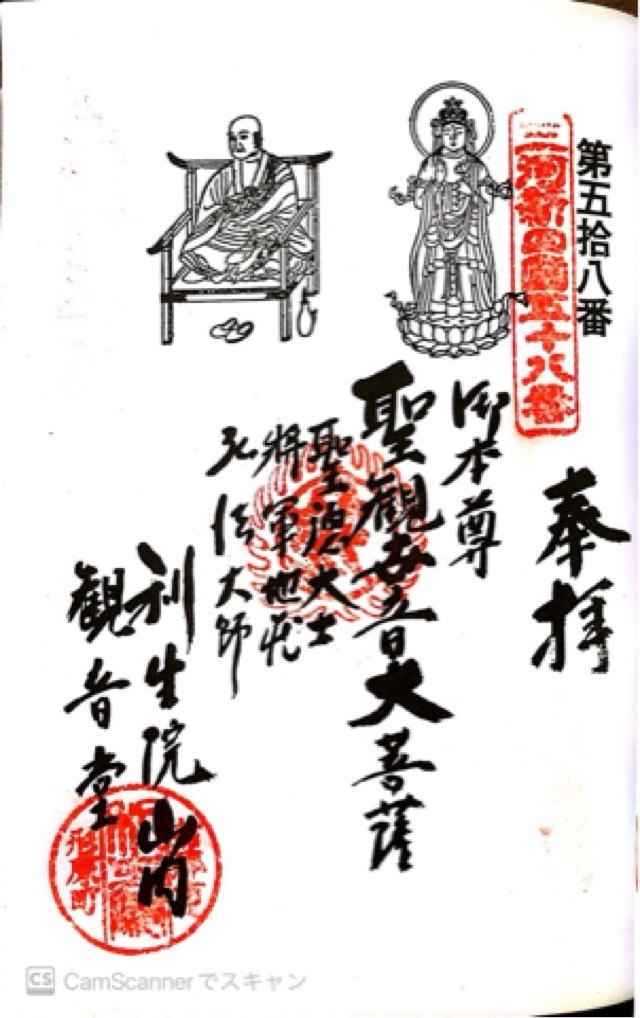 第五拾八番
三河新四國五十八番
奉拝
御本尊
聖觀世音大菩薩
聖德大士
將軍地蔵
弘法大師
利生院山内
観音堂
形原町
CS CamScannerでスキャン